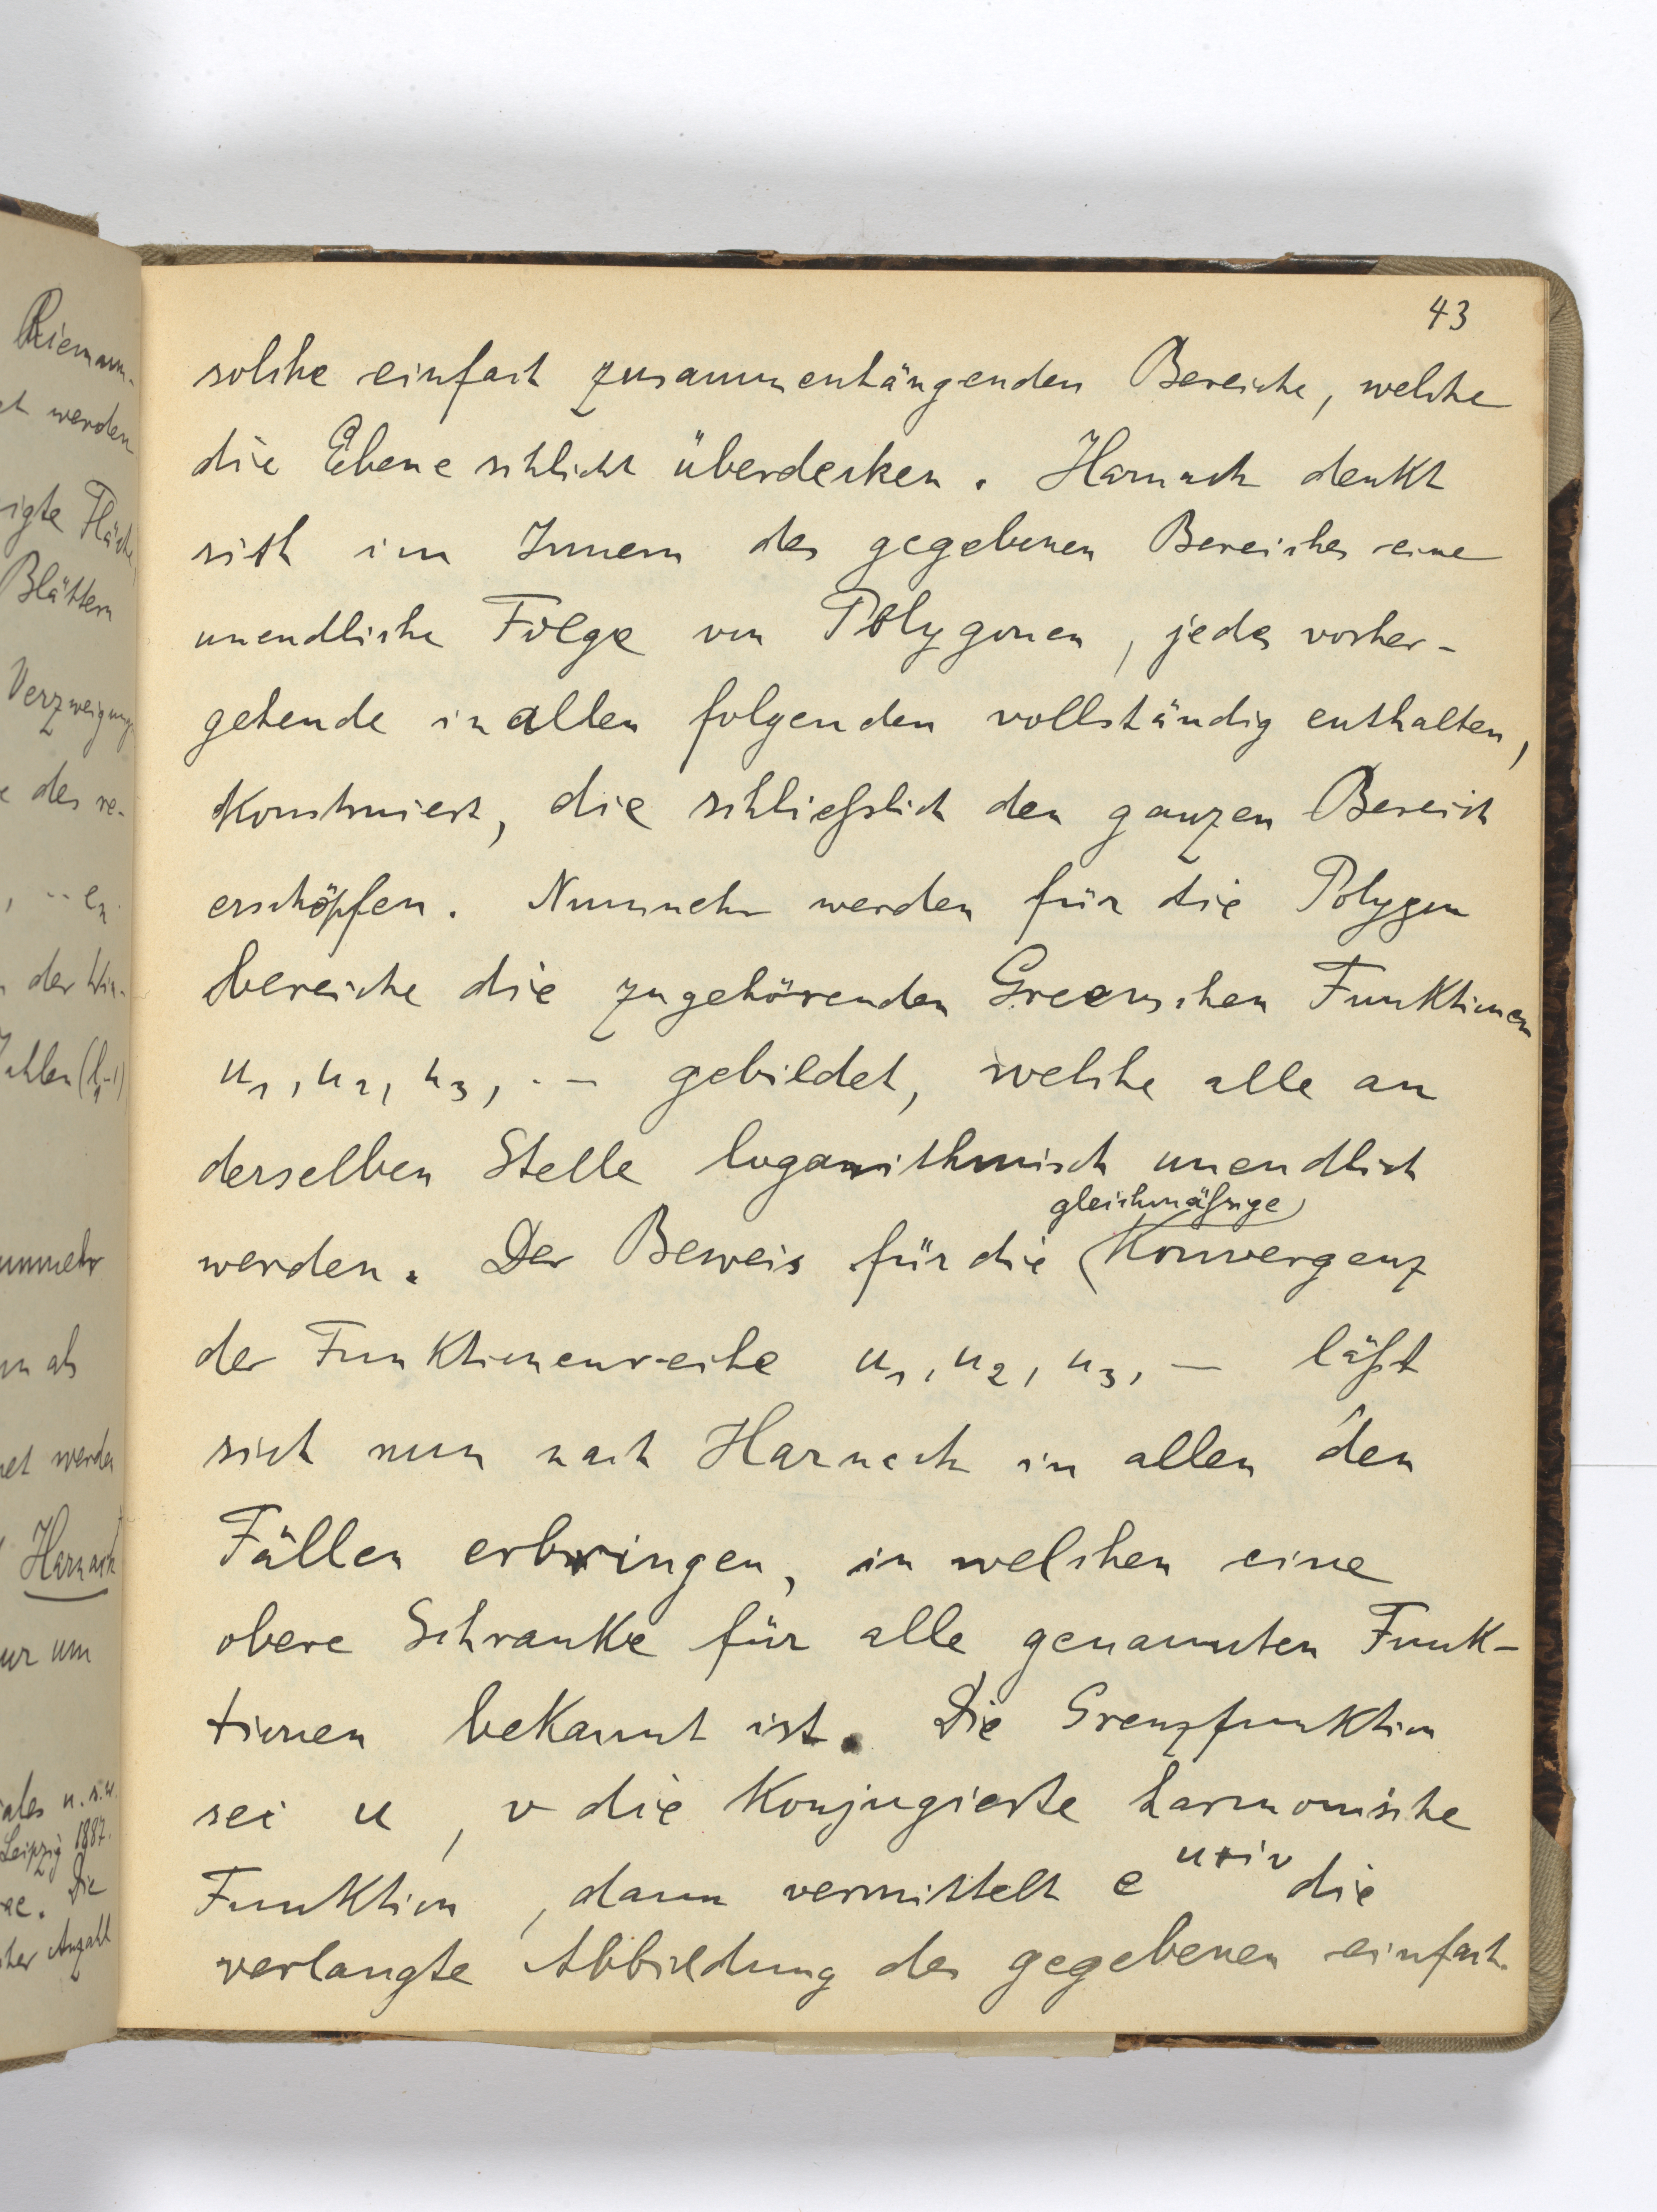 43
solche einfach zusammenhängenden Bereiche, welche
die Ebene schlicht überdecken. Harnack denkt
sich im Innern des gegebenen Bereiches eine
unendliche Folge von Polygonen, jedes vorher-
gehende in allen folgenden vollständig enthalten,
konstruiert, die schließlich den ganzen Bereich
erschöpfen. Nunmehr werden für die Polygon
bereiche die zugehörenden Greenschen Funktionen
u₁, u₂, u₃, .– gebildet, welche alle an
derselben Stelle logarithmisch unendlich
gleichmäßige
werden. Der Beweis für die Konvergenz
der Funktionenreihe u₁, u₂, u₃, – läßt
sich nun nach Harnack in allen den
Fällen erbringen, in welchen eine
obere Schranke für alle genannten Funk-
tionen bekannt ist. Die Grenzfunktion
sei u, v die konjugierte harmonische
Funktion, dann vermittelt e^{u+iv} die
verlangte Abbildung des gegebenen einfach
Riemann-
werden
igte Fläche
Blättern
Verzweigungs
des re-
, -- eₙ
der Win-
unmehr
als
et werden
Harnack
ur um
ales u.s.w.
Leipzig 1887.
Die
cher Anzahl